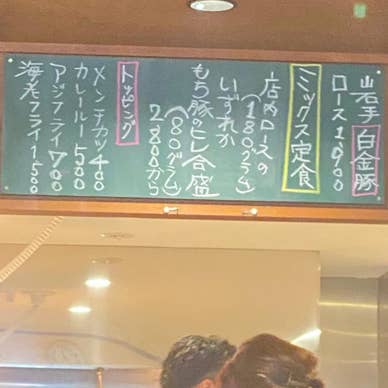 山岩手白金豚
ロース1,900
ミックス定食
店内ロースの
(180グラム)
いずれか
もち豚のヒレ合盛
(80グラム)
2,800から
トッピング
メンチカツ400
カレールー500
アジフライ700
海老フライ1500